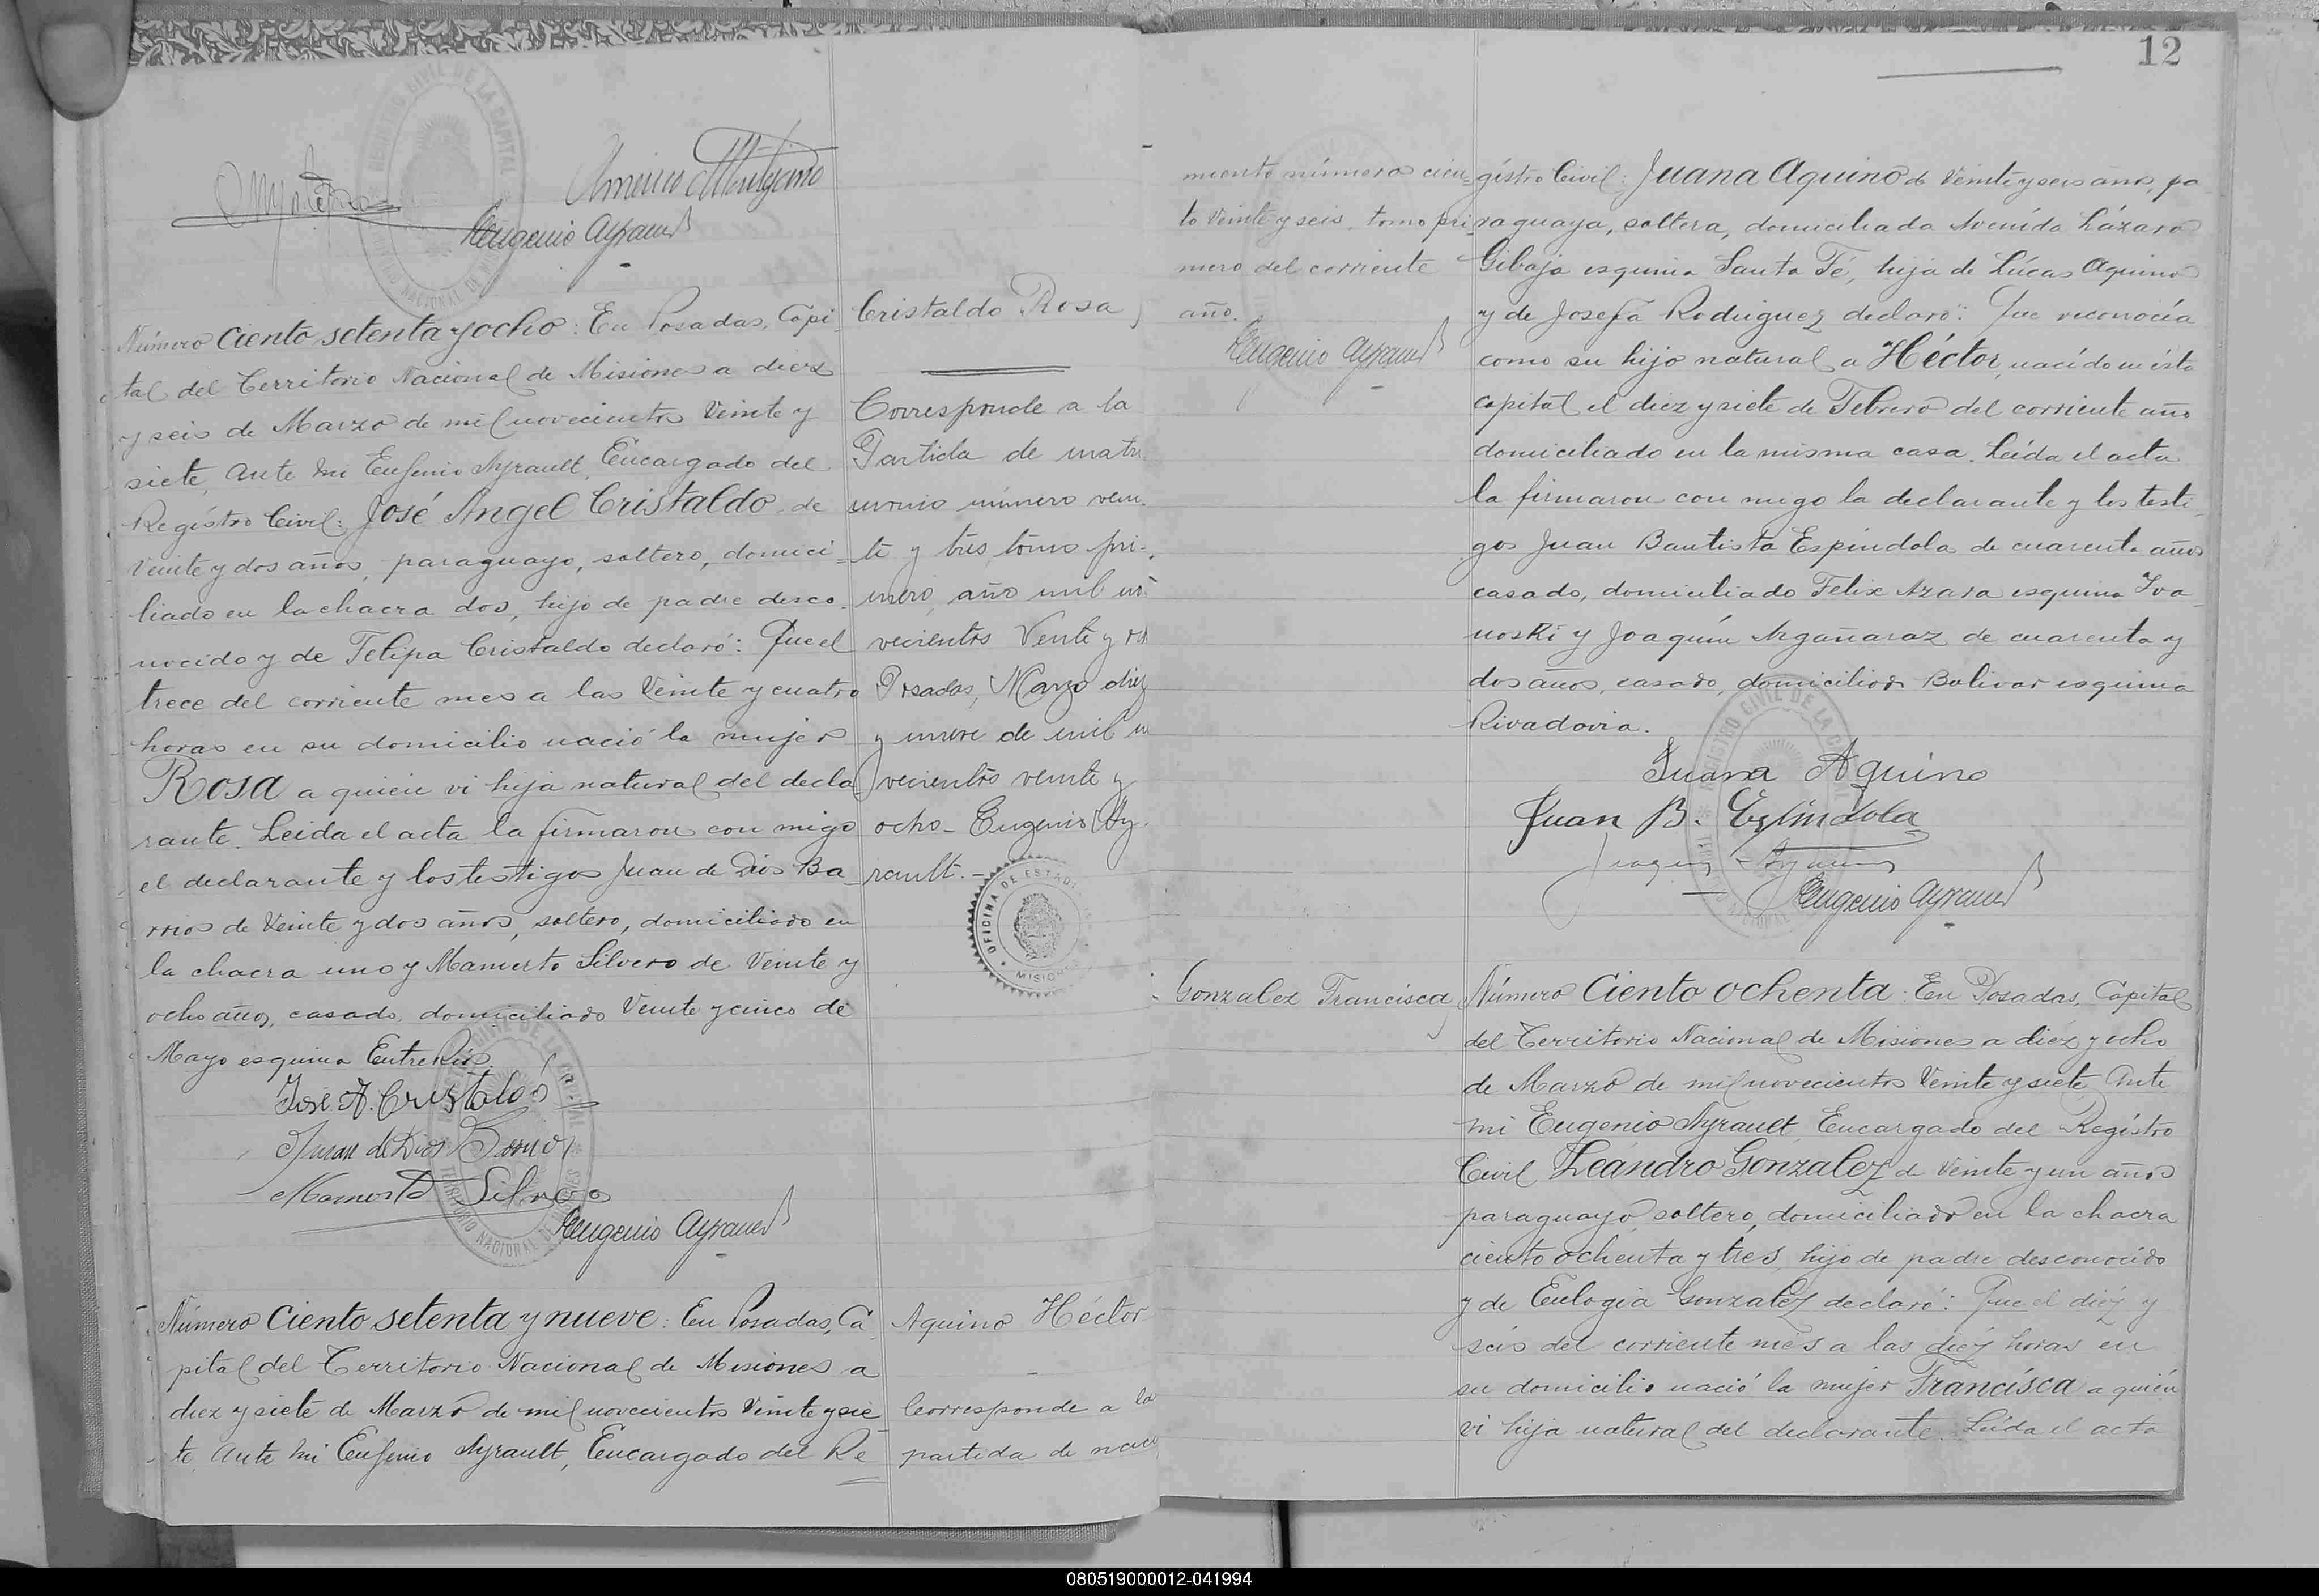 Americo
Eugenio Ayrault
Número Ciento setenta y ocho: En Posadas, Capi-
tal del Territorio Nacional de Misiones a diez
y seis de Marzo de mil novecientos Veinte y
siete, ante mi Eugenio Ayrault, Encargado del
Regístro Civil: José Angel Cristaldo, de
Veinte y dos años, paraguayo, soltero, domici-
liado en la chacra dos, hijo de padre desco-
nocido y de Felipa Cristaldo declaró: Que el
trece del corriente mes a las Veinte y cuatro
horas en su domicilio nació la mujer
Rosa a quien vi hija natural del decla
rante. Leida el acta la firmaron con migo
el declarante y los testigos Juan de Dios Ba-
rrios de Veinte y dos años, soltero, domiciliado en
la chacra uno y Mamerto Silvero de Veinte y
ocho años, casado, domiciliado Veinte y cinco de
Mayo esquina Entre Ríos
José A. Cristaldo
Juan de Dios Barrios
Mamerto Silvero
Eugenio Ayrault
Cristaldo Rosa
Corresponde a la
Partida de matri
monio número vein-
te y tres tomo pri-
mero, año mil no-
vecientos Veinte y
Posadas, Marzo diez
y nueve de mil no
vecientos veinte y
ocho- Eugenio Ay-
rault.-
OFICINA DE ESTADI
MISIONES
Número Ciento setenta y nueve: En Posadas, Ca-
pital del Territorio Nacional de Misiones a
diez y siete de Marzo de mil novecientos Veinte y sie
te, ante mi Eugenio Ayrault, Encargado del Re
Aquino Héctor
Corresponde a la
partida de naci
12
miento número cien-
to Veinte y seis tomo pri-
mero del corriente
año.
Eugenio Ayrault
gístro Civil: Juana Aquino de Veinte y seis años, pa
raguaya, soltera, domiciliada Avenída Lázaro
Gibaja esquina Santa Fé, hija de Lúcas Aquino
y de Josefa Rodriguez declaró: Que reconocía
como su hijo natural a Héctor, nacído en ésta
capital el diez y siete de Febrero del corriente año
domiciliado en la misma casa. Leída el acta
la firmaron con migo la declarante y los testi-
gos Juan Bautista Espíndola de cuarenta años
casado, domiciliado Felix Azara esquina Iva-
noski y Joaquín Argañaraz de cuarenta y
dos años, casado, domiciliado Bolivar esquina
Rivadavia.
Juana Aquino
Juan B. Espíndola
Eugenio Ayrault
Gonzalez Francísca
Número Ciento ochenta: En Posadas, Capital
del Territorio Nacional de Misiones a diez y ocho
de Marzo de mil novecientos Veinte y siete, ante
mi Eugenio Ayrault, Encargado del Regístro
Civil Leándro Gonzalez de Veinte y un años
paraguayo, soltero, domiciliado en la chacra
ciento ochenta y tres, hijo de padre desconocido
y de Eulogia Gonzalez declaró: Que el diez y
seis del corriente mes a las diez horas en
su domicilio nació la mujer Francísca a quién
vi hija natural del declarante. Leída el acta
080519000012-041994